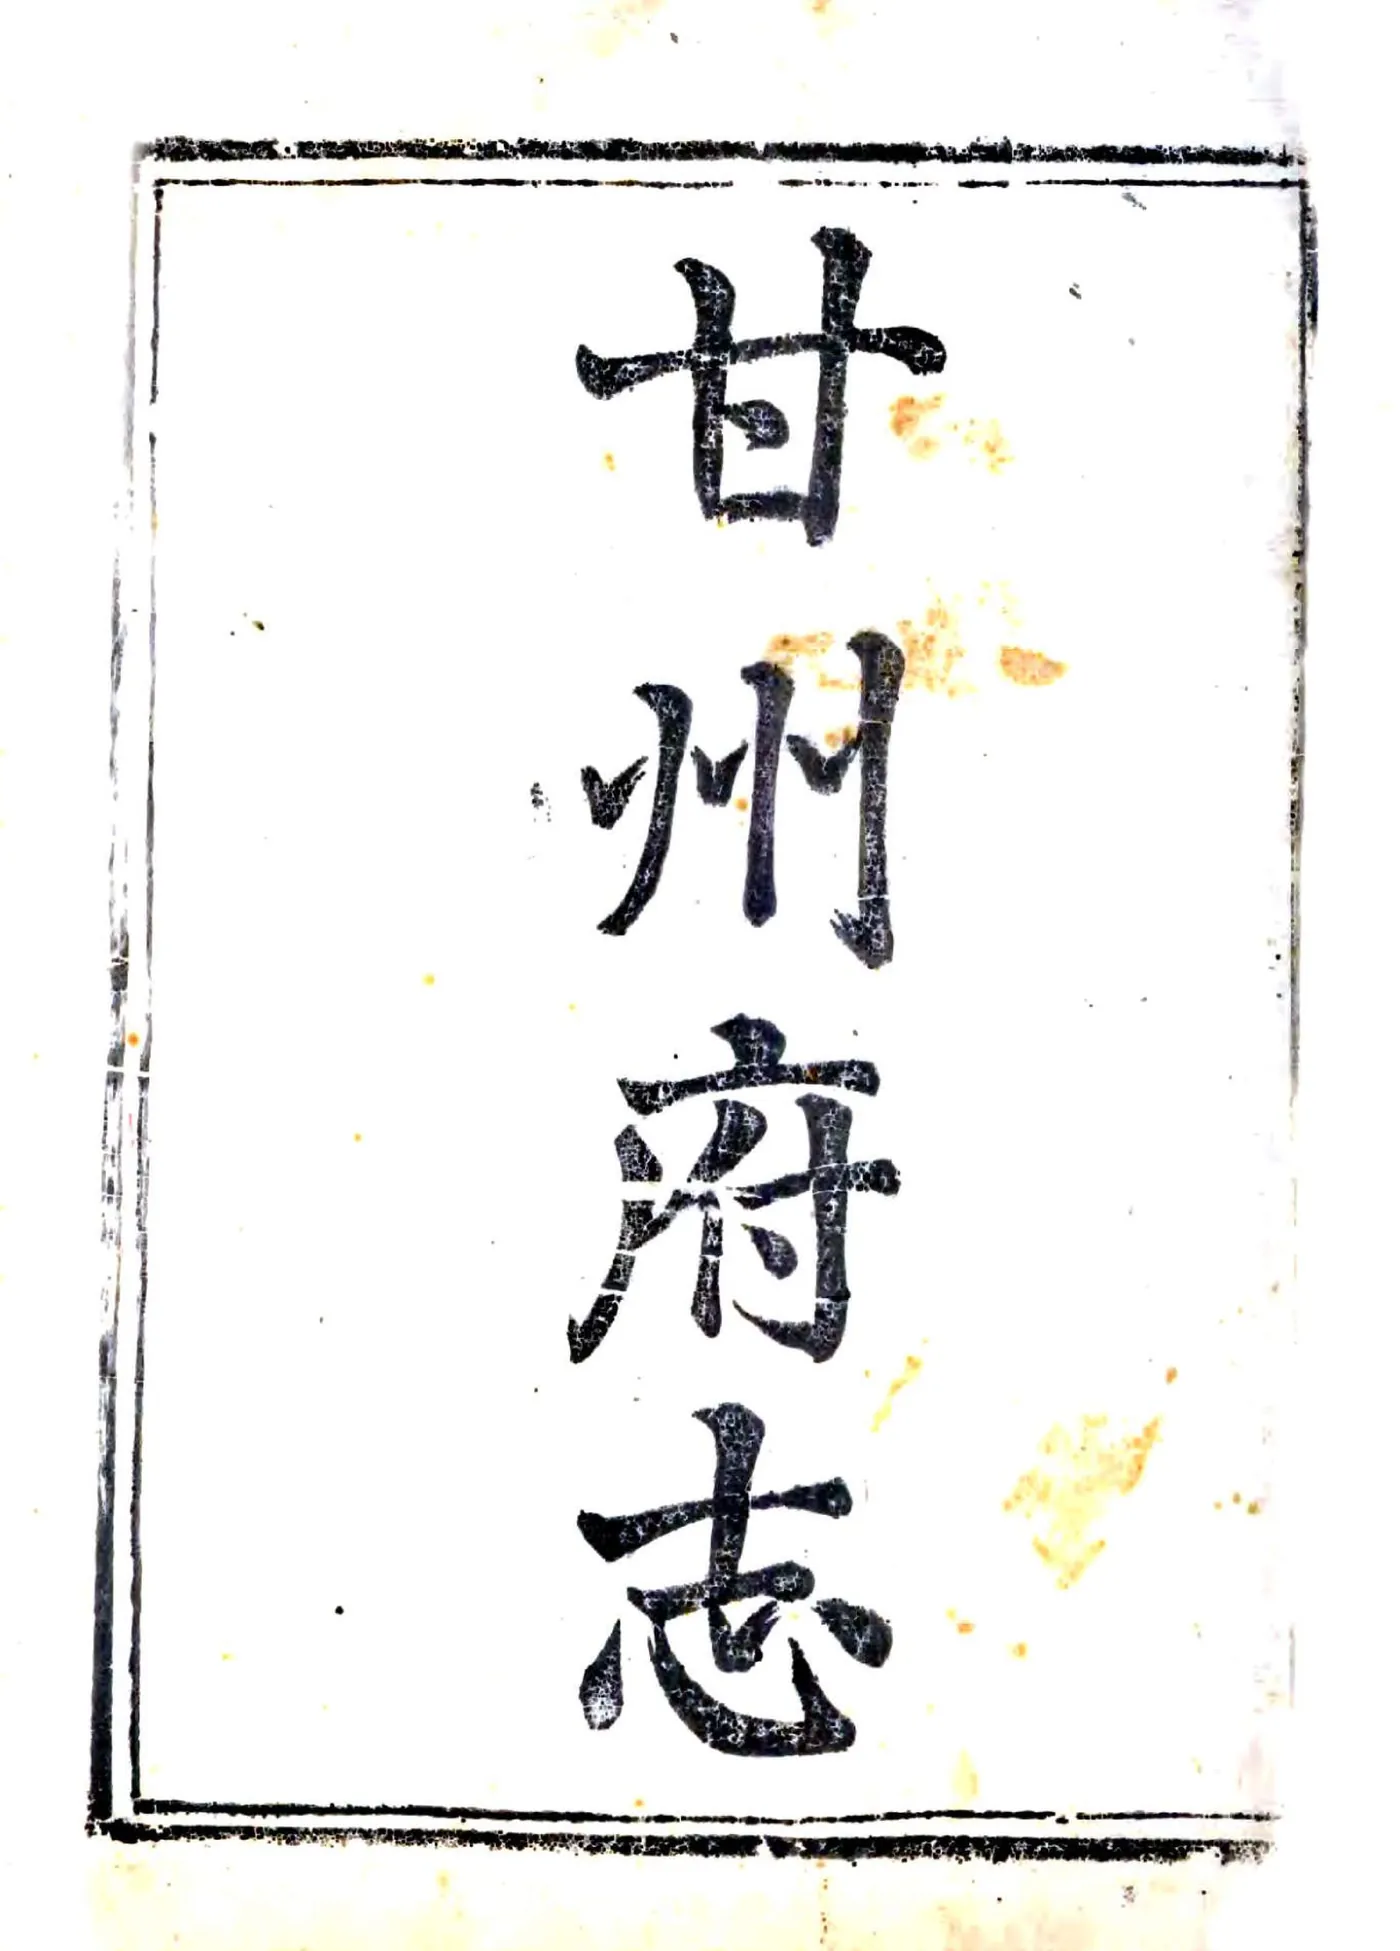 甘州府志